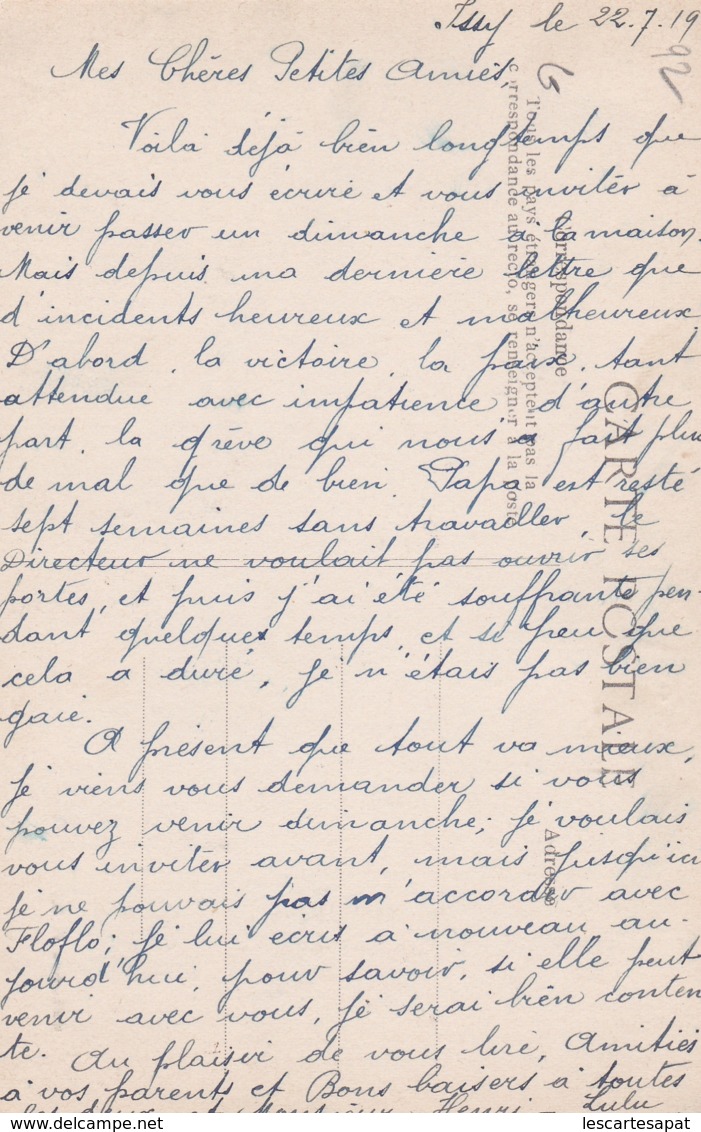 Issy le 22.7.19
92
Mes Chères Petites Amies,
Voilà déjà bien longtemps que
je devais vous écrire et vous inviter à
venir passer un dimanche à la maison.
Mais depuis ma dernière lettre que
d'incidents heureux et malheureux.
D'abord, la victoire, la paix, tant
attendue avec impatience d'autre
part, la grève qui nous a fait plus
de mal que de bien. Papa est resté
sept semaines sans travailler, le
Directeur ne voulait pas ouvrir ses
portes, et puis j'ai été souffrante pen-
dant quelques temps, et si peu que
cela a duré, je n'étais pas bien
gaie.
A présent que tout va mieux,
je viens vous demander si vous
pouvez venir dimanche; je voulais
vous inviter avant, mais jusqu'ici
je ne pouvais pas m'accorder avec
Floflo; je lui écris à nouveau au-
jourd'hui, pour savoir, si elle peut
venir avec vous, je serai bien conten
te. Au plaisir de vous lire, Amitiés
à vos parents et Bons baisers à toutes
les deux et Monsieur Henri - Lulu
CARTE POSTALE
Correspondance
Tous les pays étrangers n'acceptent pas la
correspondance au recto, se renseigner à la poste
Adresse
delcampe.net
lescartesapat